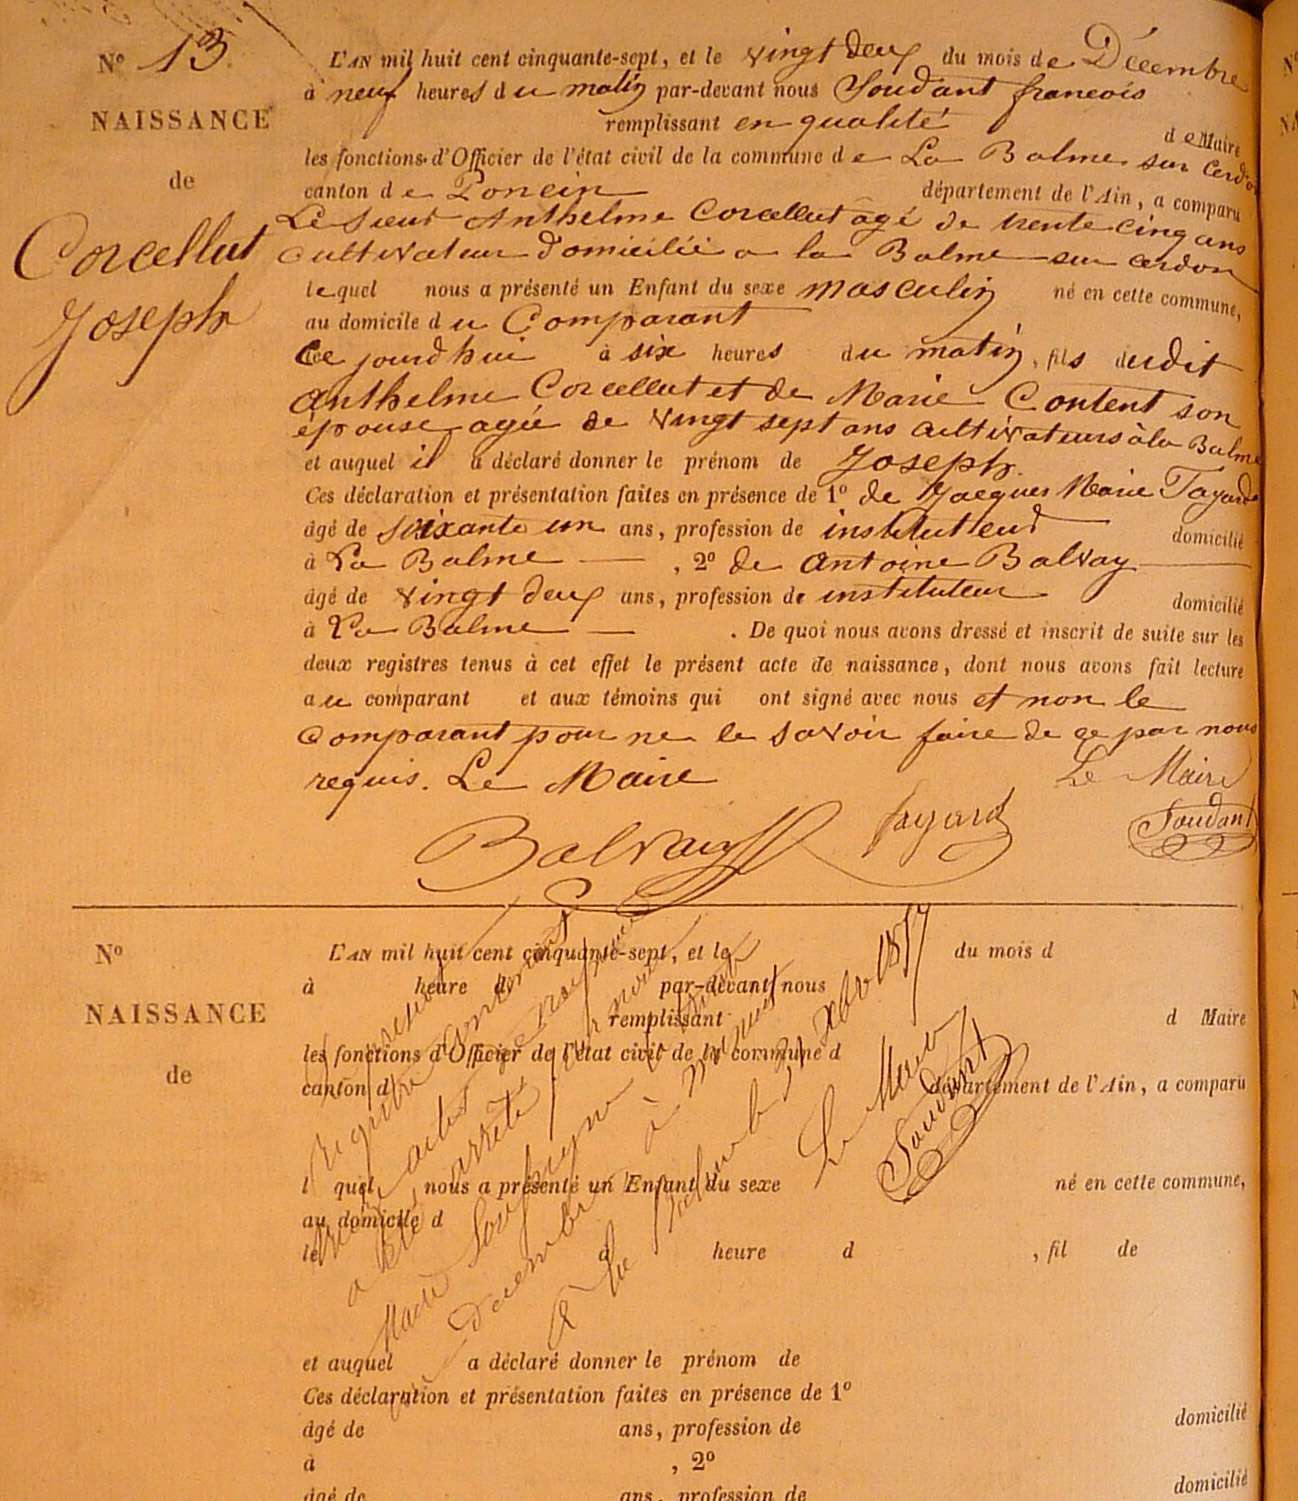 N° 13.
NAISSANCE
de
Corcellut
Joseph
L'AN mil huit cent cinquante-sept, et le vingt deux du mois de Décembre
à neuf heures du matin par-devant nous Soudant françois
remplissant en qualité de Maire
les fonctions d'Officier de l'état civil de la commune de La Balme sur Cerdon
canton de Poncin département de l'Ain, a comparu
Le sieur Anthelme Corcellut âgé de trente cinq ans
Cultivateur domicilié a la Balme sur cerdon
lequel nous a présenté un Enfant du sexe masculin né en cette commune,
au domicile du Comparant
Ce jourdhui à six heures du matin, fils dudit
Anthelme Corcellut et de Marie Content son
épouse agée de vingt sept ans cultivateurs à la Balme
et auquel il a déclaré donner le prénom de Joseph.
Ces déclaration et présentation faites en présence de 1° de Jacques Marie Fayard
âgé de soixante un ans, profession de instituteur domicilié
à La Balme , 2° de Antoine Balvay
âgé de vingt deux ans, profession de instituteur domicilié
à La Balme . De quoi nous avons dressé et inscrit de suite sur les
deux registres tenus à cet effet le présent acte de naissance, dont nous avons fait lecture
au comparant et aux témoins qui ont signé avec nous et non le
comparant pour ne le savoir faire de ce par nous
requis. Le Maire Le Maire
Balvay fayard Soudant
N°
NAISSANCE
de
L'AN mil huit cent cinquante-sept, et le du mois d
à heure d par-devant nous
remplissant d Maire
les fonctions d'Officier de l'état civil de la commune d
canton d département de l'Ain, a comparu
l quel nous a présenté un Enfant du sexe né en cette commune,
au domicile d
le à heure d , fil de
et auquel a déclaré donner le prénom de
Ces déclaration et présentation faites en présence de 1°
âgé de ans, profession de domicilié
à , 2°
âgé de ans, profession de domicilié
Le présent
Registre contenant
actes de naissance
a été arrêté par nous
Maire soussigné
décembre à minuit
A La Balme le 31 Xbre 1857
Le Maire
Soudant